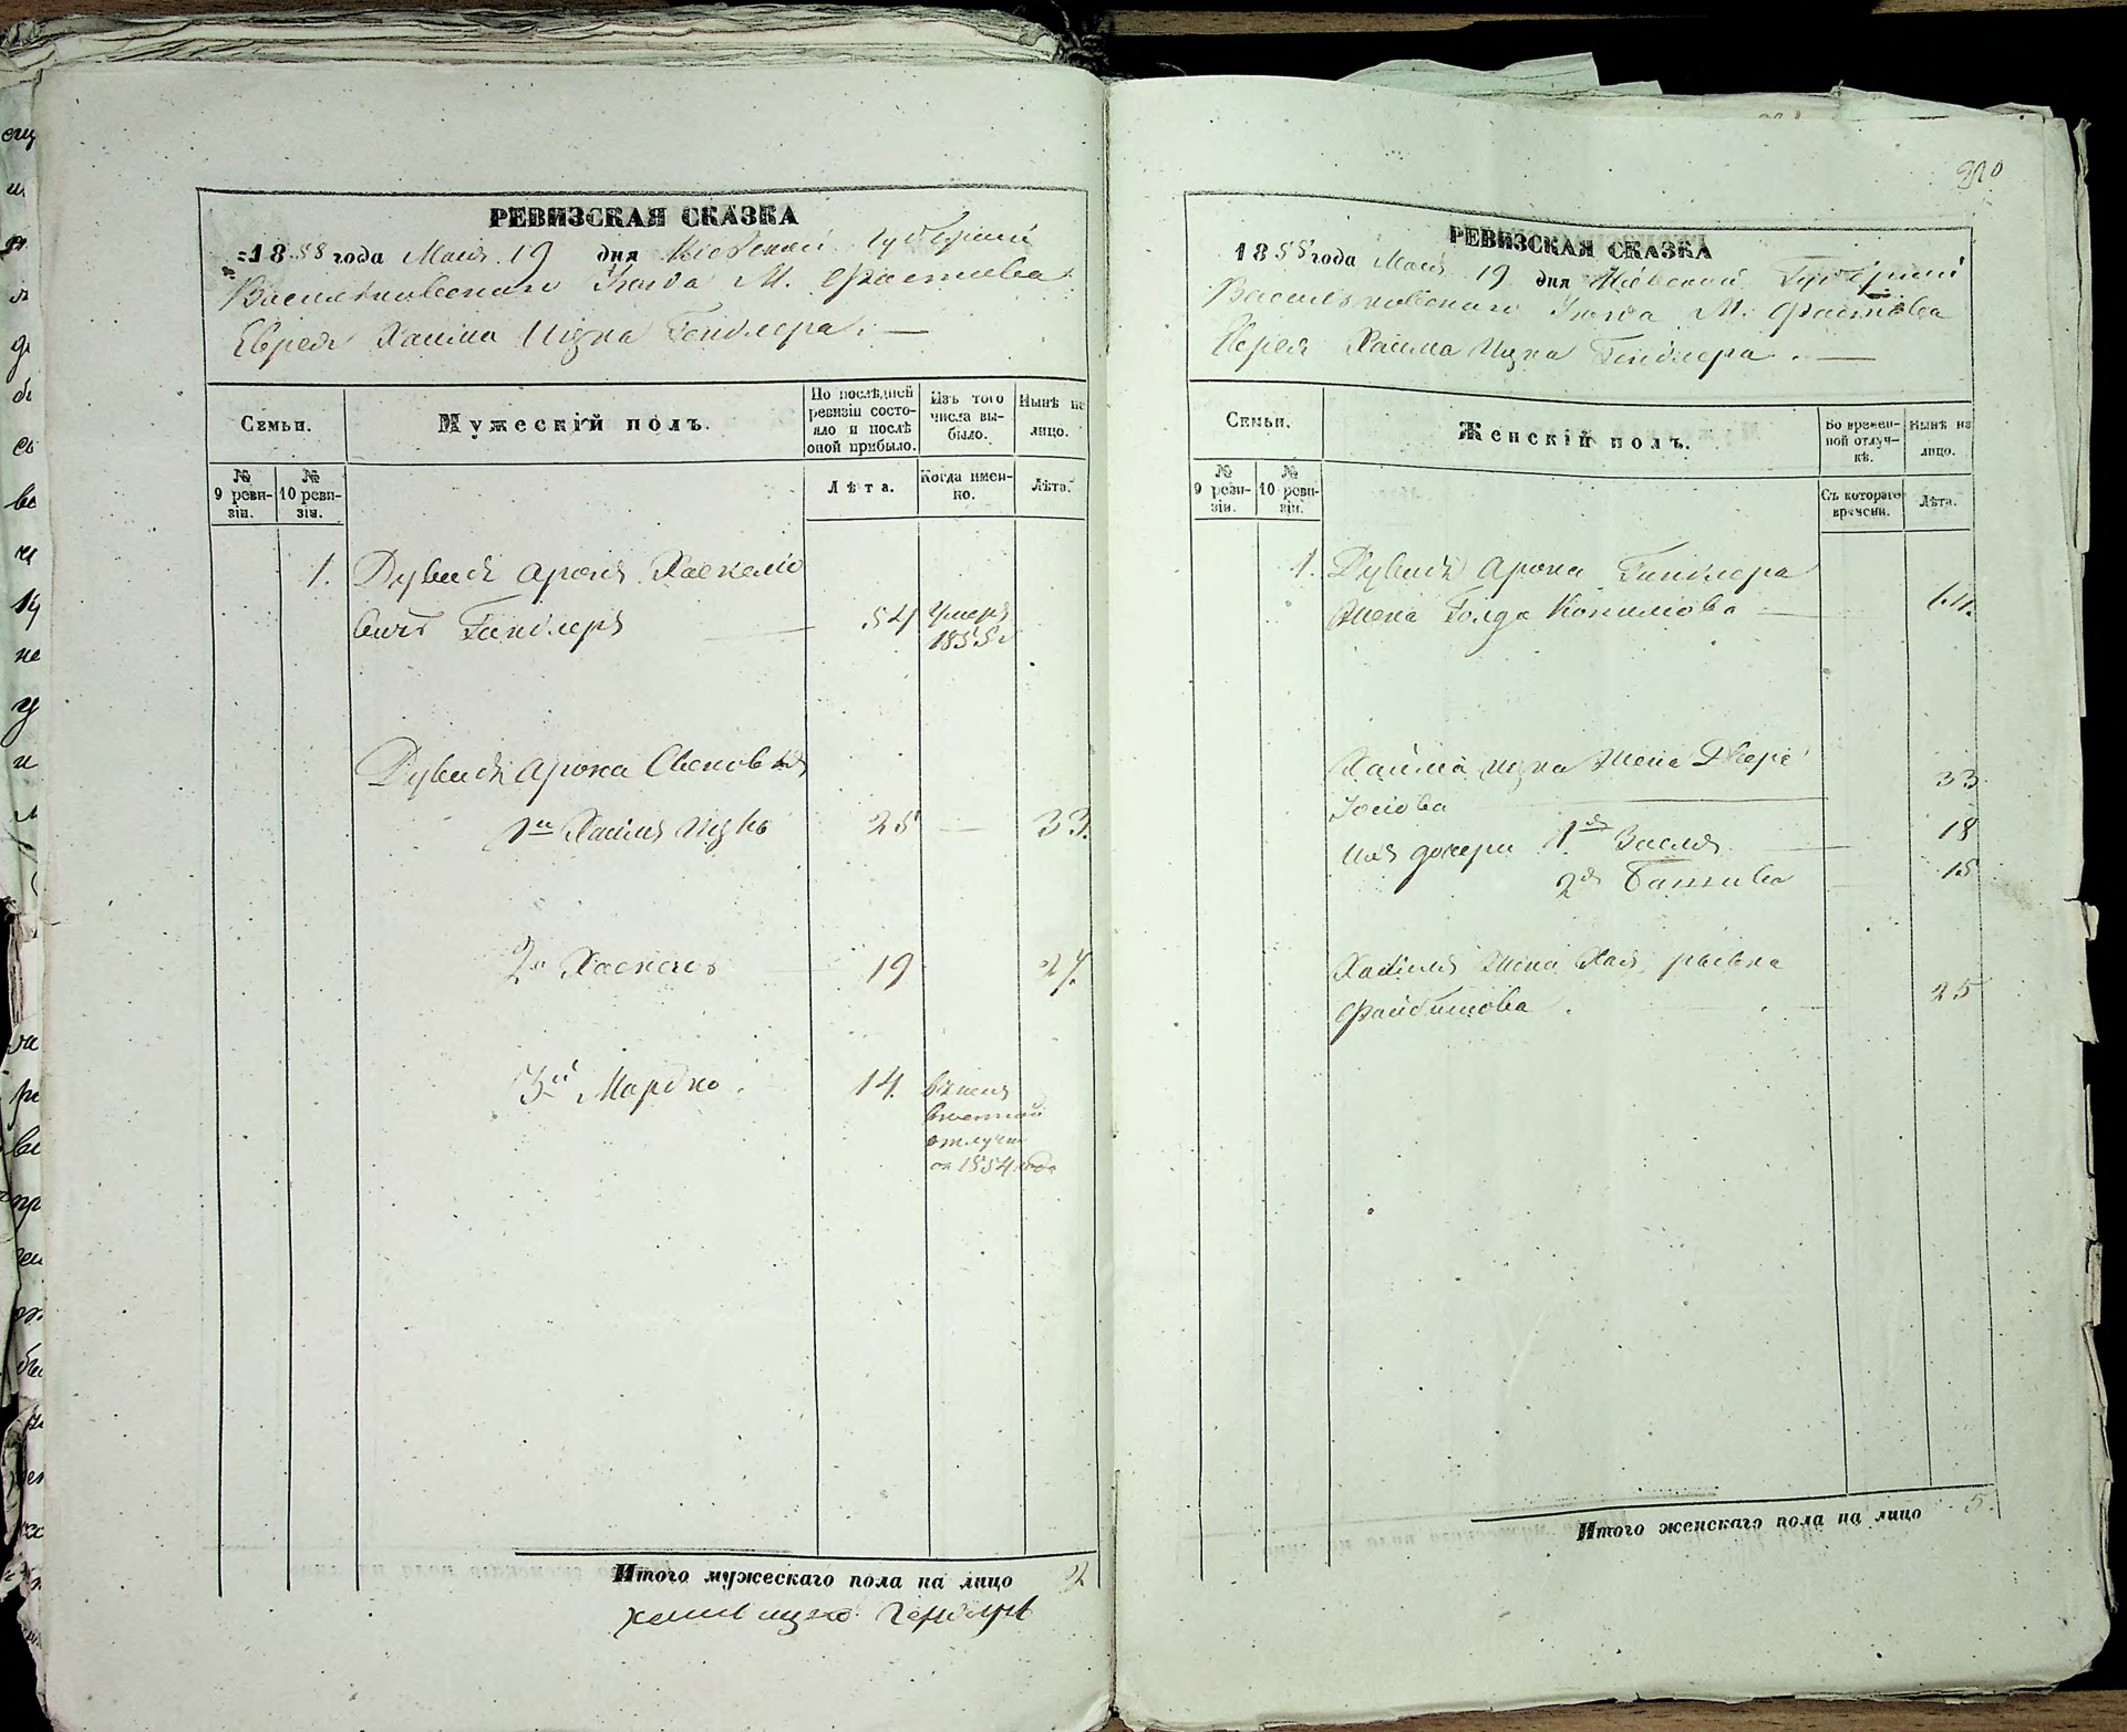 РЕВИЗСКАЯ СКАЗКА
1858 года Мая 19 дня Кіевской Губерніи
Васильковскаго Уезда М. Фастова
Еврея Хаима Ицка Гендлера.
Семьи.
Мужескій полъ.
По послѣдней ревизіи состояло и послѣ оной прибыло.
Изъ того числа выбыло.
Нынѣ на лицо.
№ 9 ревизіи.
№ 10 ревизіи.
Лѣта.
Когда именно.
Лѣта.
1. Дувидъ Аронъ Хаскеліо
вичъ Гендлеръ 54 Умеръ
1855 г
Дувидъ Арона Сыновья
1й Хаимъ Ицко 25 33.
2й Хаскель 19 27.
3й Мордко. 14.
отлучке
1854 года
Итого мужескаго пола на лицо 2
хаимъ ицко гендлеръ
220
РЕВИЗСКАЯ СКАЗКА
1858 года Мая 19 дня Кіевской Губерніи
Васильковскаго Уезда М. Фастова
Еврея Хаима Ицка Гендлера.
Семьи.
Женскій полъ.
Во временной отлучкѣ.
Нынѣ на лицо.
№ 9 ревизіи.
№ 10 ревизіи.
Съ котораго времени.
Лѣта.
1. Дувидъ Арона Гендлера
жена Голда 64.
Хаима Ицка жена Двере 33
Іосіова
Ихъ дочери 1я Зисля 18
2я Батшива 15
Хаскеля жена Хая рывка
Файбишова. 25
Итого женскаго пола на лицо 5.